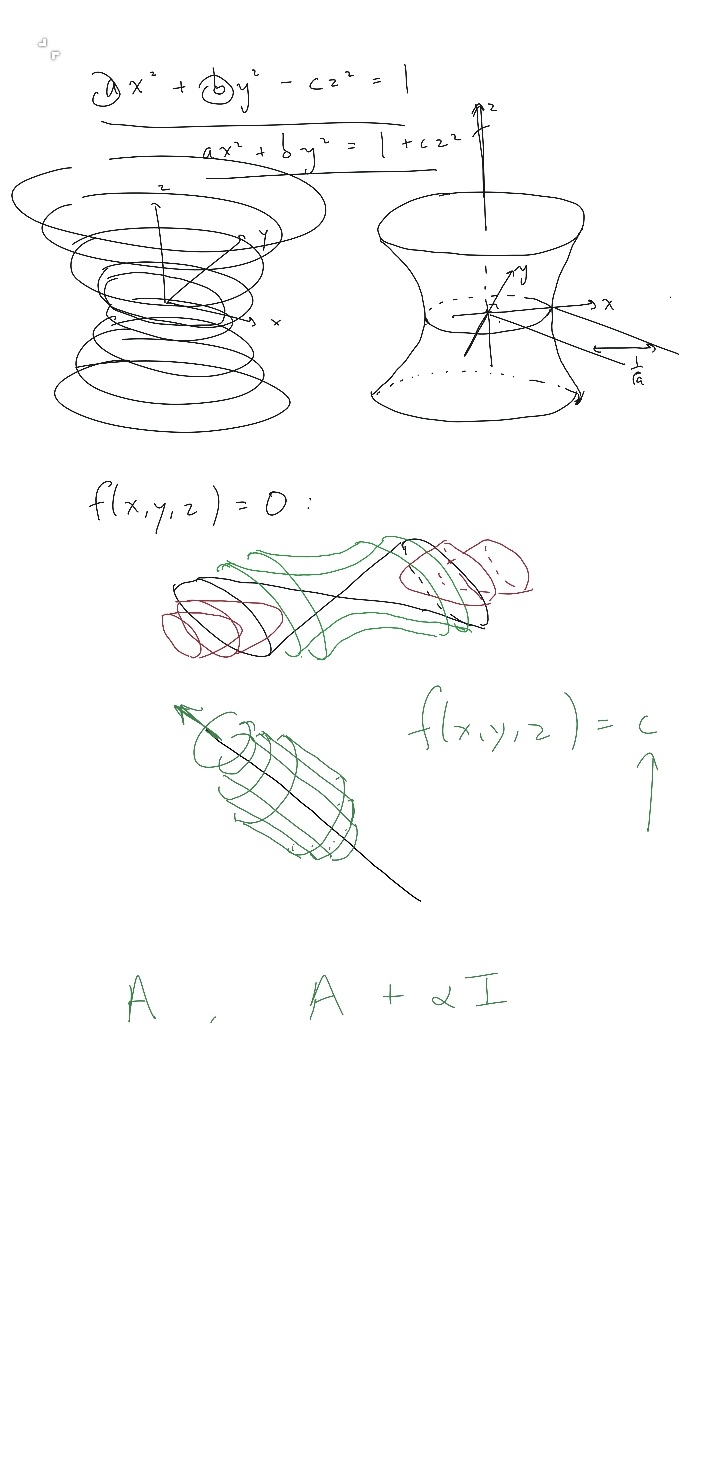 ax² + by² - cz² = 1
ax² + by² = 1 + cz²
z
z
y
y
x
x
1/√a
f(x,y,z) = 0 :
f(x,y,z) = c
A , A + αI